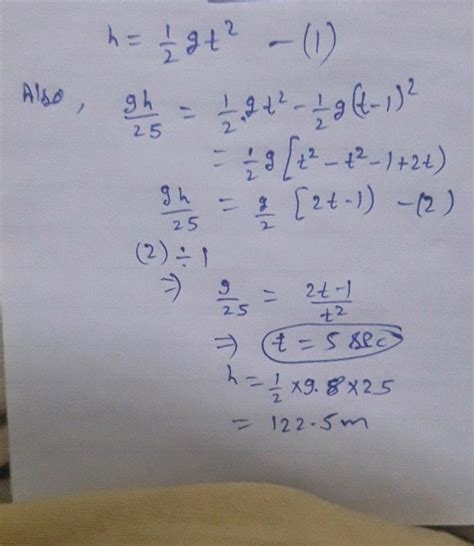 h = 1/2 g t² – (1)
Also, 9h/25 = 1/2 . g t² – 1/2 g (t–1)²
= 1/2 g [t² – t² – 1 + 2t)
9h/25 = g/2 [2t–1) – (2)
(2) ÷ 1
⇒ 9/25 = 2t–1/t²
⇒ t = 5 sec
h = 1/2 × 9.8 × 25
= 122.5 m